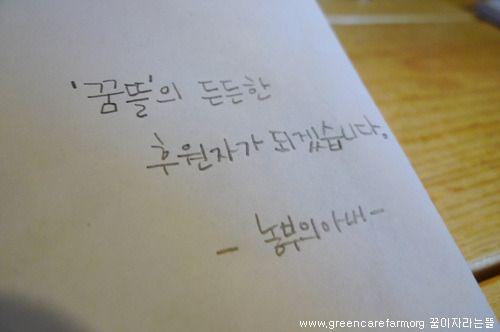 '꿈뜰'의 든든한
후원자가 되겠습니다.
- 농부의아내-
www.greencarefarm.org 꿈이자라는뜰